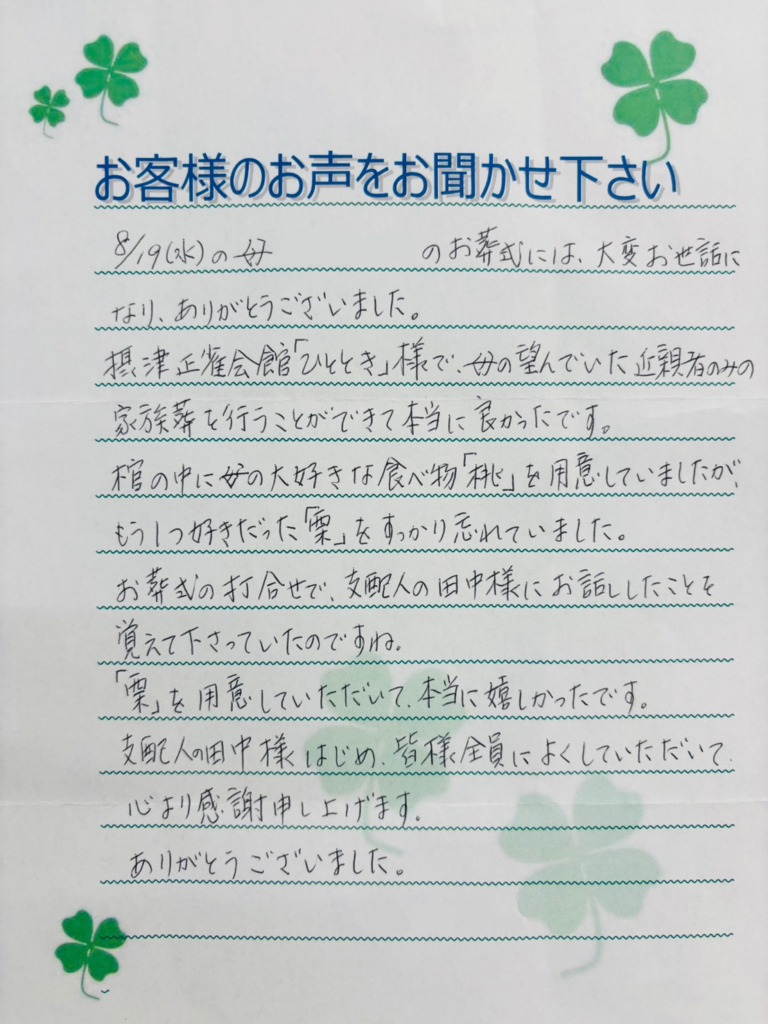 お客様のお声をお聞かせ下さい
8/19(水)の母　　　　のお葬式には、大変お世話に
なり、ありがとうございました。
摂津正雀会館「ひととき」様で、母の望んでいた近親者のみの
家族葬を行うことができて本当に良かったです。
棺の中に母の大好きな食べ物「桃」を用意していましたが、
もう1つ好きだった「栗」をすっかり忘れていました。
お葬式の打合せで、支配人の田中様にお話ししたことを
覚えて下さっていたのですね。
「栗」を用意していただいて、本当に嬉しかったです。
支配人の田中様はじめ、皆様全員によくしていただいて、
心より感謝申し上げます。
ありがとうございました。